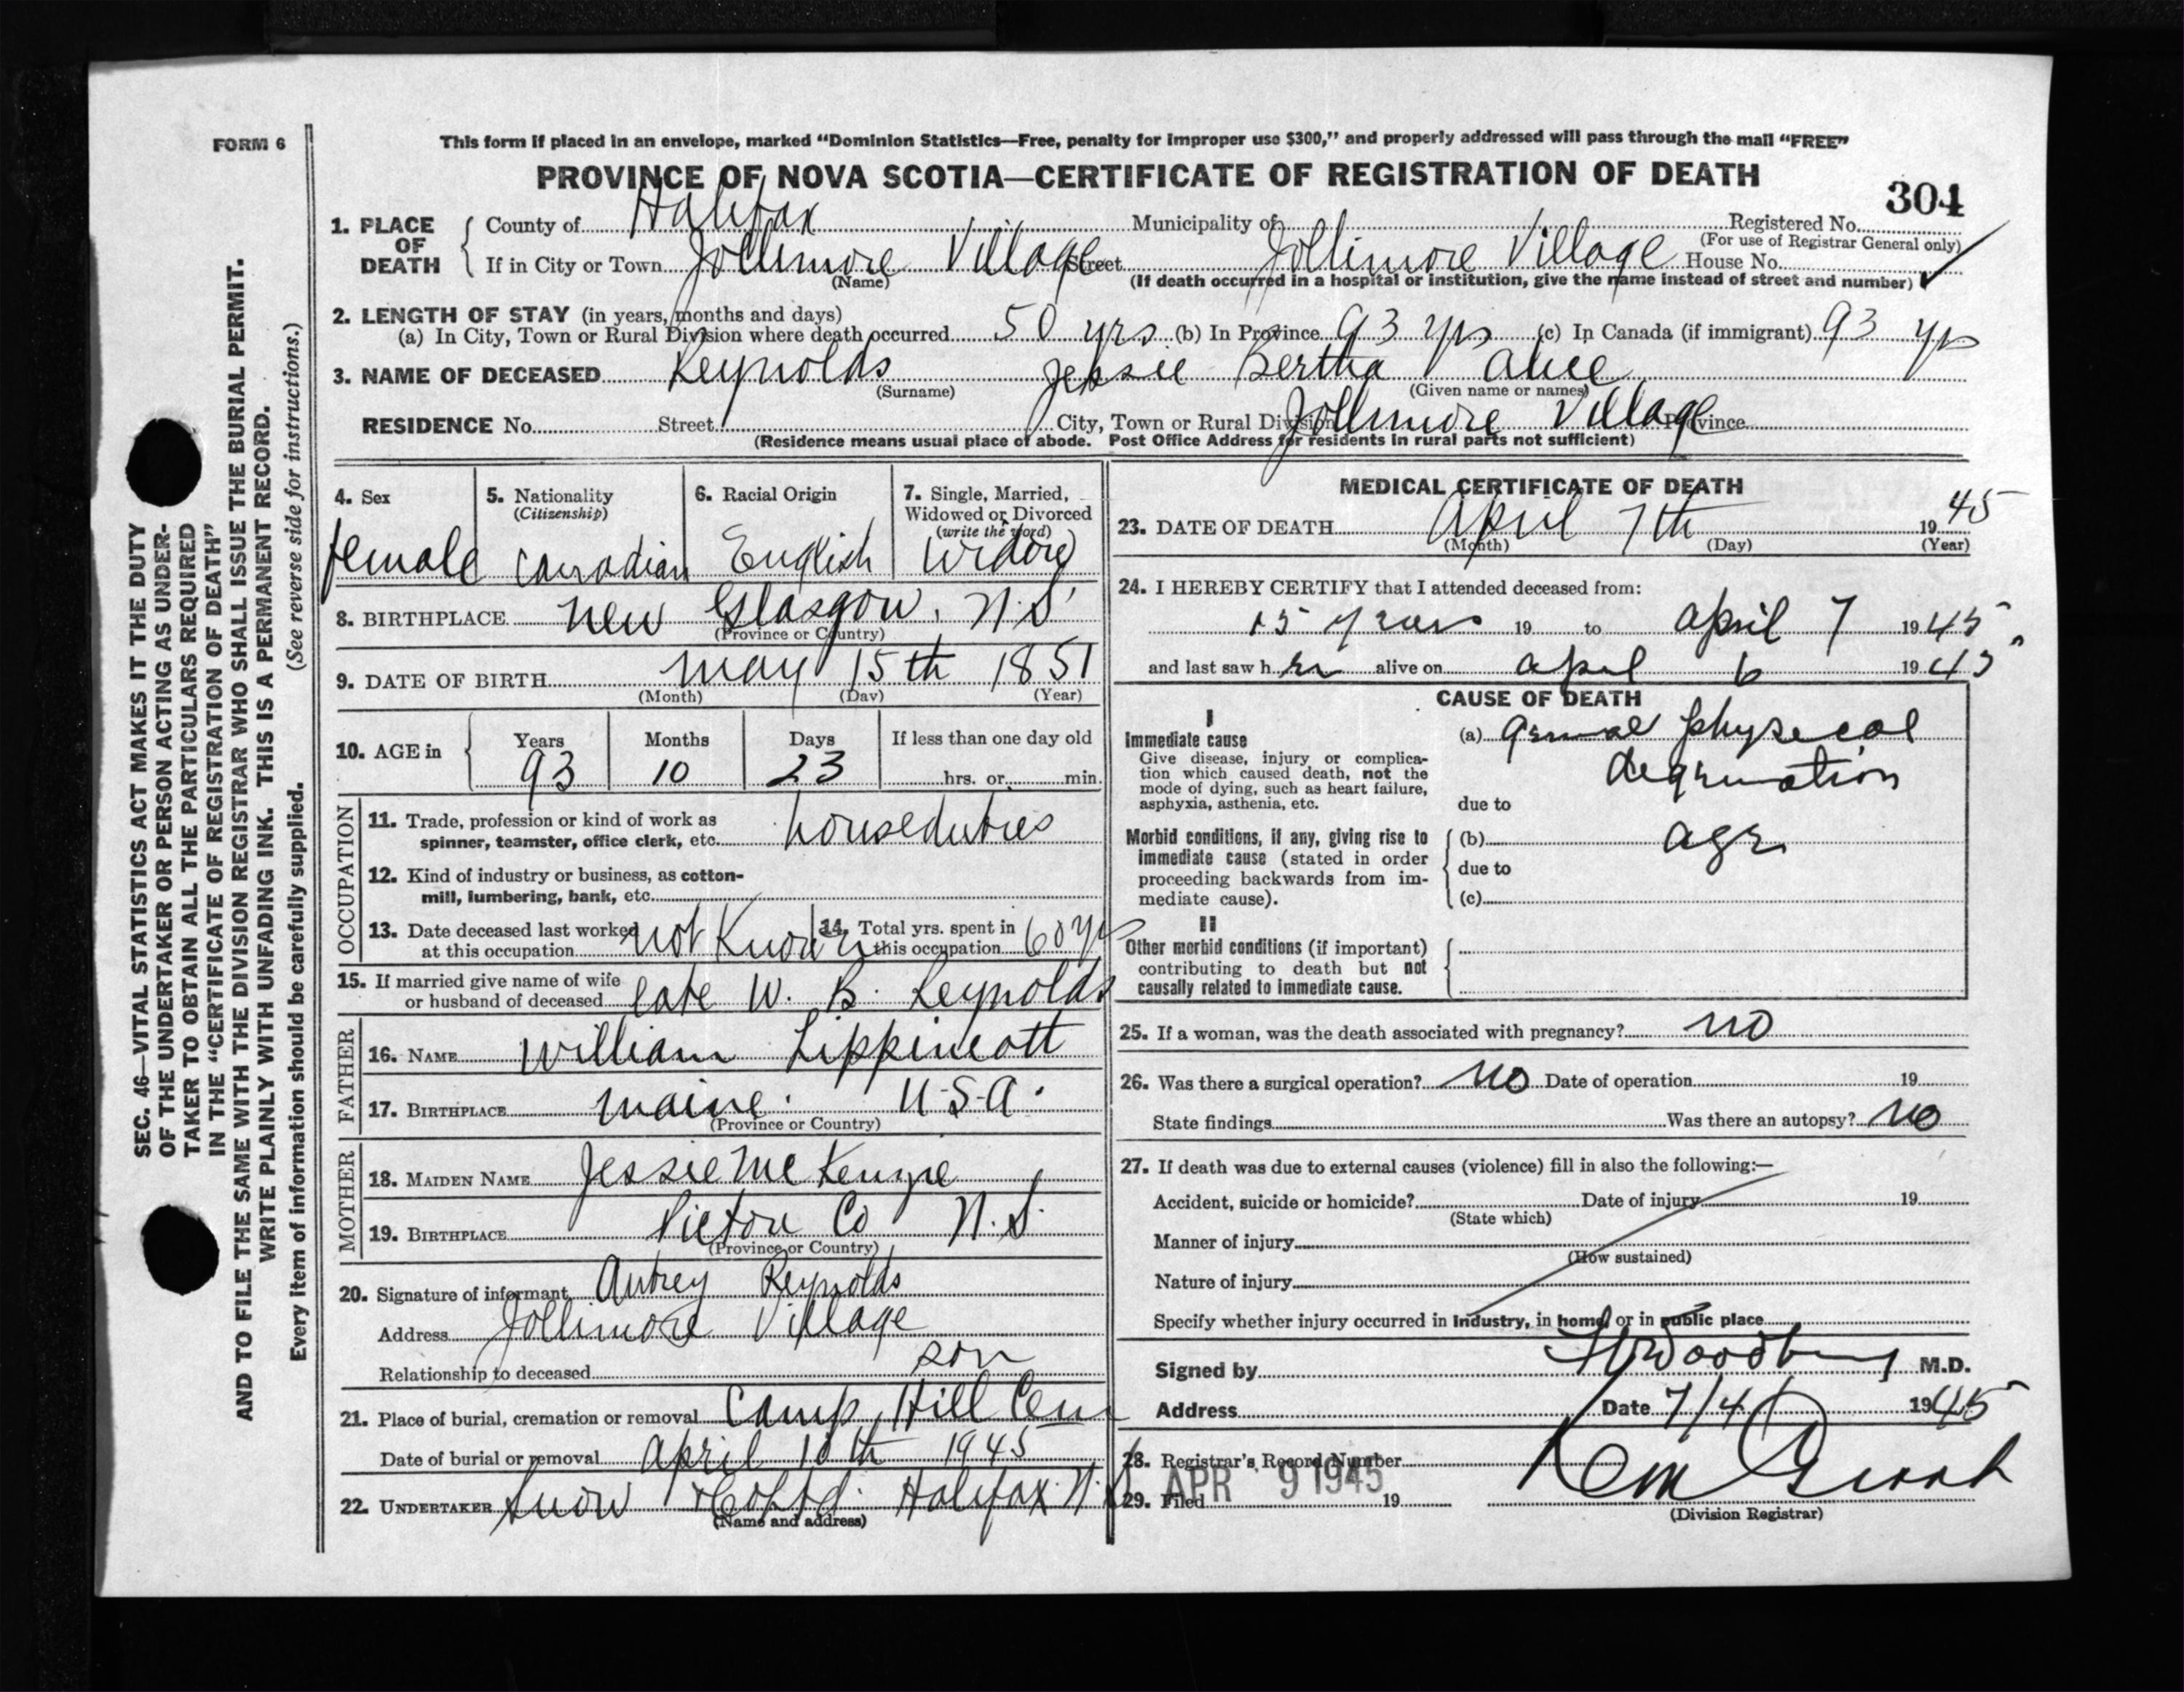 FORM 6
This form if placed in an envelope, marked “Dominion Statistics—Free, penalty for improper use $300,” and properly addressed will pass through the mail “FREE”
PROVINCE OF NOVA SCOTIA—CERTIFICATE OF REGISTRATION OF DEATH
304
1. PLACE OF DEATH
County of Halifax Municipality of Registered No.
(For use of Registrar General only)
If in City or Town Jollimore Village Street Jollimore Village House No.
(Name) (If death occurred in a hospital or institution, give the name instead of street and number)
2. LENGTH OF STAY (in years, months and days)
(a) In City, Town or Rural Division where death occurred 50 yrs (b) In Province 93 yrs (c) In Canada (if immigrant) 93 yrs
3. NAME OF DECEASED Reynolds Jessie Bertha Alice
(Surname) (Given name or names)
RESIDENCE No. Street City, Town or Rural Division Jollimore Village Province
(Residence means usual place of abode. Post Office Address for residents in rural parts not sufficient)
4. Sex
female
5. Nationality
(Citizenship)
Canadian
6. Racial Origin
English
7. Single, Married,
Widowed or Divorced
(write the word)
Widow
8. BIRTHPLACE New Glasgow, N.S.
(Province or Country)
9. DATE OF BIRTH May 15th 1851
(Month) (Day) (Year)
10. AGE in
Years Months Days If less than one day old
93 10 23 hrs. or min.
OCCUPATION
11. Trade, profession or kind of work as
spinner, teamster, office clerk, etc. houseduties
12. Kind of industry or business, as cotton-
mill, lumbering, bank, etc.
13. Date deceased last worked
at this occupation not Known
14. Total yrs. spent in
this occupation 60 yrs
15. If married give name of wife
or husband of deceased late W. B. Reynolds
FATHER
16. NAME William Lippincott
17. BIRTHPLACE Maine. U.S.A.
(Province or Country)
MOTHER
18. MAIDEN NAME Jessie McKenzie
19. BIRTHPLACE Pictou Co N.S.
(Province or Country)
20. Signature of informant Aubrey Reynolds
Address Jollimore Village
Relationship to deceased son
21. Place of burial, cremation or removal Camp Hill Cem
Date of burial or removal April 10th 1945
22. UNDERTAKER Snow & Co Ltd. Halifax N.S.
(Name and address)
MEDICAL CERTIFICATE OF DEATH
23. DATE OF DEATH April 7th 1945
(Month) (Day) (Year)
24. I HEREBY CERTIFY that I attended deceased from:
15 years 19 to April 7 1945
and last saw her alive on April 6 1945
CAUSE OF DEATH
I
Immediate cause
Give disease, injury or complica-
tion which caused death, not the
mode of dying, such as heart failure,
asphyxia, asthenia, etc.
(a) General physical
degeneration
due to
Morbid conditions, if any, giving rise to
immediate cause (stated in order
proceeding backwards from im-
mediate cause).
(b) age
due to
(c)
II
Other morbid conditions (if important)
contributing to death but not
causally related to immediate cause.
25. If a woman, was the death associated with pregnancy? no
26. Was there a surgical operation? no Date of operation 19
State findings Was there an autopsy? no
27. If death was due to external causes (violence) fill in also the following:—
Accident, suicide or homicide? Date of injury 19
(State which)
Manner of injury
(How sustained)
Nature of injury
Specify whether injury occurred in industry, in home, or in public place
Signed by Woodbury M.D.
Address Date 7/4/ 1945
28. Registrar's Record Number
29. Filed APR 9 1945 19
(Division Registrar)
SEC. 46—VITAL STATISTICS ACT MAKES IT THE DUTY
OF THE UNDERTAKER OR PERSON ACTING AS UNDER-
TAKER TO OBTAIN ALL THE PARTICULARS REQUIRED
IN THE “CERTIFICATE OF REGISTRATION OF DEATH”
AND TO FILE THE SAME WITH THE DIVISION REGISTRAR WHO SHALL ISSUE THE BURIAL PERMIT.
WRITE PLAINLY WITH UNFADING INK. THIS IS A PERMANENT RECORD.
Every item of information should be carefully supplied. (See reverse side for instructions.)